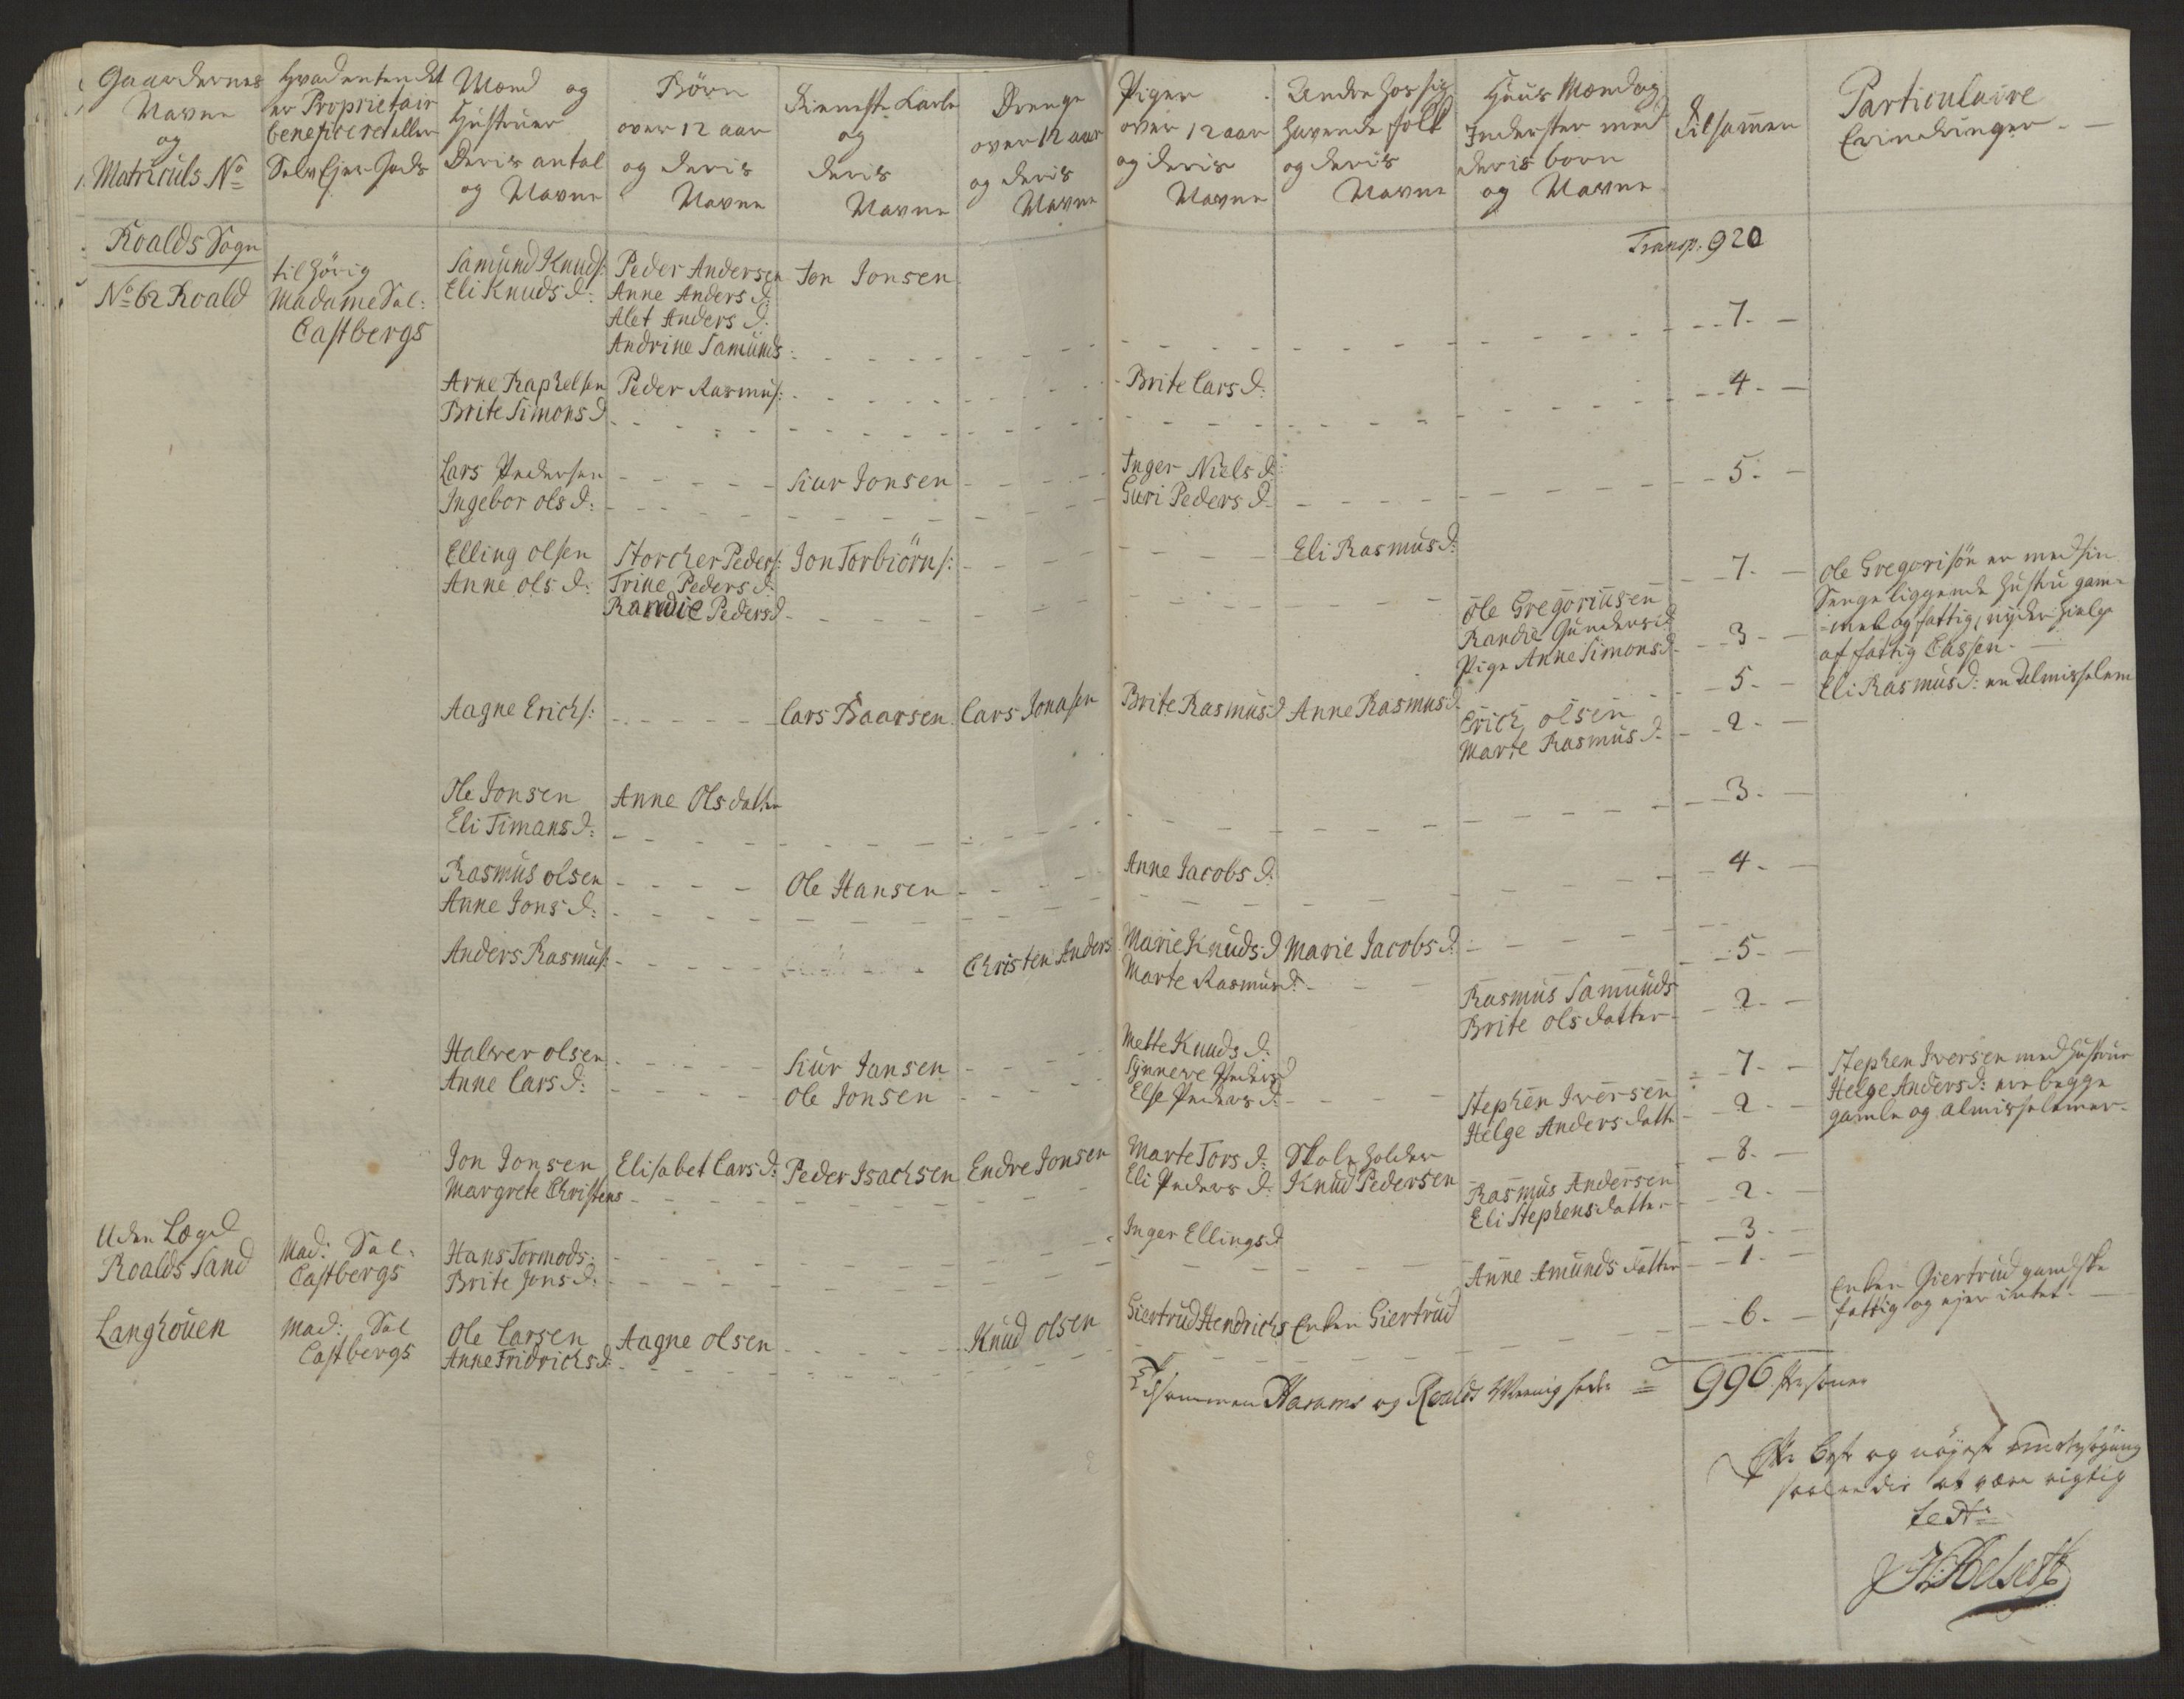 Gaardernes
Navne
og
Matriculs No
Hvad enten det
er Proprietair
beneficeret eller
Selv Ejer Gods
Mænd og
Hustruer
Deris antal
og Navne
Börn
over 12 aar
og deris
Navne
Tieneste Karle
og
deris
Navne
Drenge
over 12 aar
og deris
Navne
Piger
over 12 aar
og deris
Navne
Andre hos sig
havende folk
og deris
Navne
Huus Mænd og
Inderster med
deris born
og Navne
Tilsamen
Particulaire
Erindringer
Roalds Sogn
Transp. 920
No 62 Roald
tilhörig
Madame Sal:
Castbergs
Samund Knuds:
Eli Knuds d:
Peder Andersen
Anne Anders d:
Alet Anders d:
Andrine Samunds
Jon Jonsen
7
Arne Raphelsen
Brite Simons d
Peder Rasmus:
Brite Lars d:
4
Lars Pedersen
Ingebor ols d:
Kur Jonsen
Inger Niels d:
Guri Peders d
5
Elling olsen
Anne ols d:
Storcker Peders:
Trine Peders d:
Randie Peders d
Jon Torbiörns:
Eli Rasmus d:
7
Ole Gregoriusen
Randie Gunders d
Pige Anne Simons d
3
Ole Gregorisön er med sin
Senge liggende Hustru gam-
mel og fattig, nyder hielp
af fattig Cassen.
Eli Rasmus d: en Almisselem
Aagne Erichs:
Lars Baarsen
Lars Jonasen
Brite Rasmus d
Anne Rasmus d
5
Erich olsen
Marte Rasmus d
2
Ole Jonsen
Eli Timans d:
Anne Olsdatter
3
Rasmus olsen
Anne Jons d:
Ole Hansen
Anne Jacobs d:
4
Anders Rasmus:
Christen Anders
Marie Knuds d
Marte Rasmus d:
Marie Jacobs d:
5
Rasmus Samunds
Brite olsdatter
2
Halver olsen
Anne Lars d:
Kur Jansen
Ole Jonsen
Mette Knuds d:
Synneve Peders d
Else Peders d:
7
Stephen Iversen
Helge Andersdatte
2
Stephen Iversen med Hustrue
Helge Anders d: ere begge
gamle og almisselemer
Jon Jonsen
Margrete Christens
Elisabet Lars d:
Peder Isachsen
Endre Jonsen
Marte Tors d:
Eli Peders d:
Skoleholder
Knud Pedersen
8
Rasmus Andersen
Eli Stephensdatter
2
Uden Lægd
Roalds Sand
Mad: Sal:
Castbergs
Hans Tormods:
Brite Jons d:
Inger Ellings d
3
Anne Amunds datter
1
Langhouen
Mad: Sal
Castbergs
Ole Larsen
Anne Fridrichs d:
Aagne olsen
Knud olsen
Giertrud Hendrichs
Enken Giertrud
6
Enken Giertrud gandske
fattig og ejer intet
Tilsammen Harams og Roalds = 996 Personer
at være rigtig